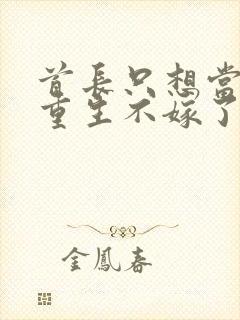 首長只想當
重生不嫁了
金鳳春